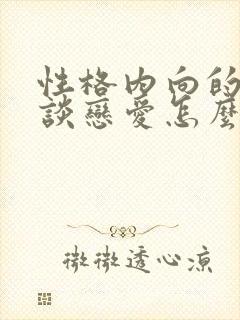 性格内向的
談戀愛怎麼
微微透心涼